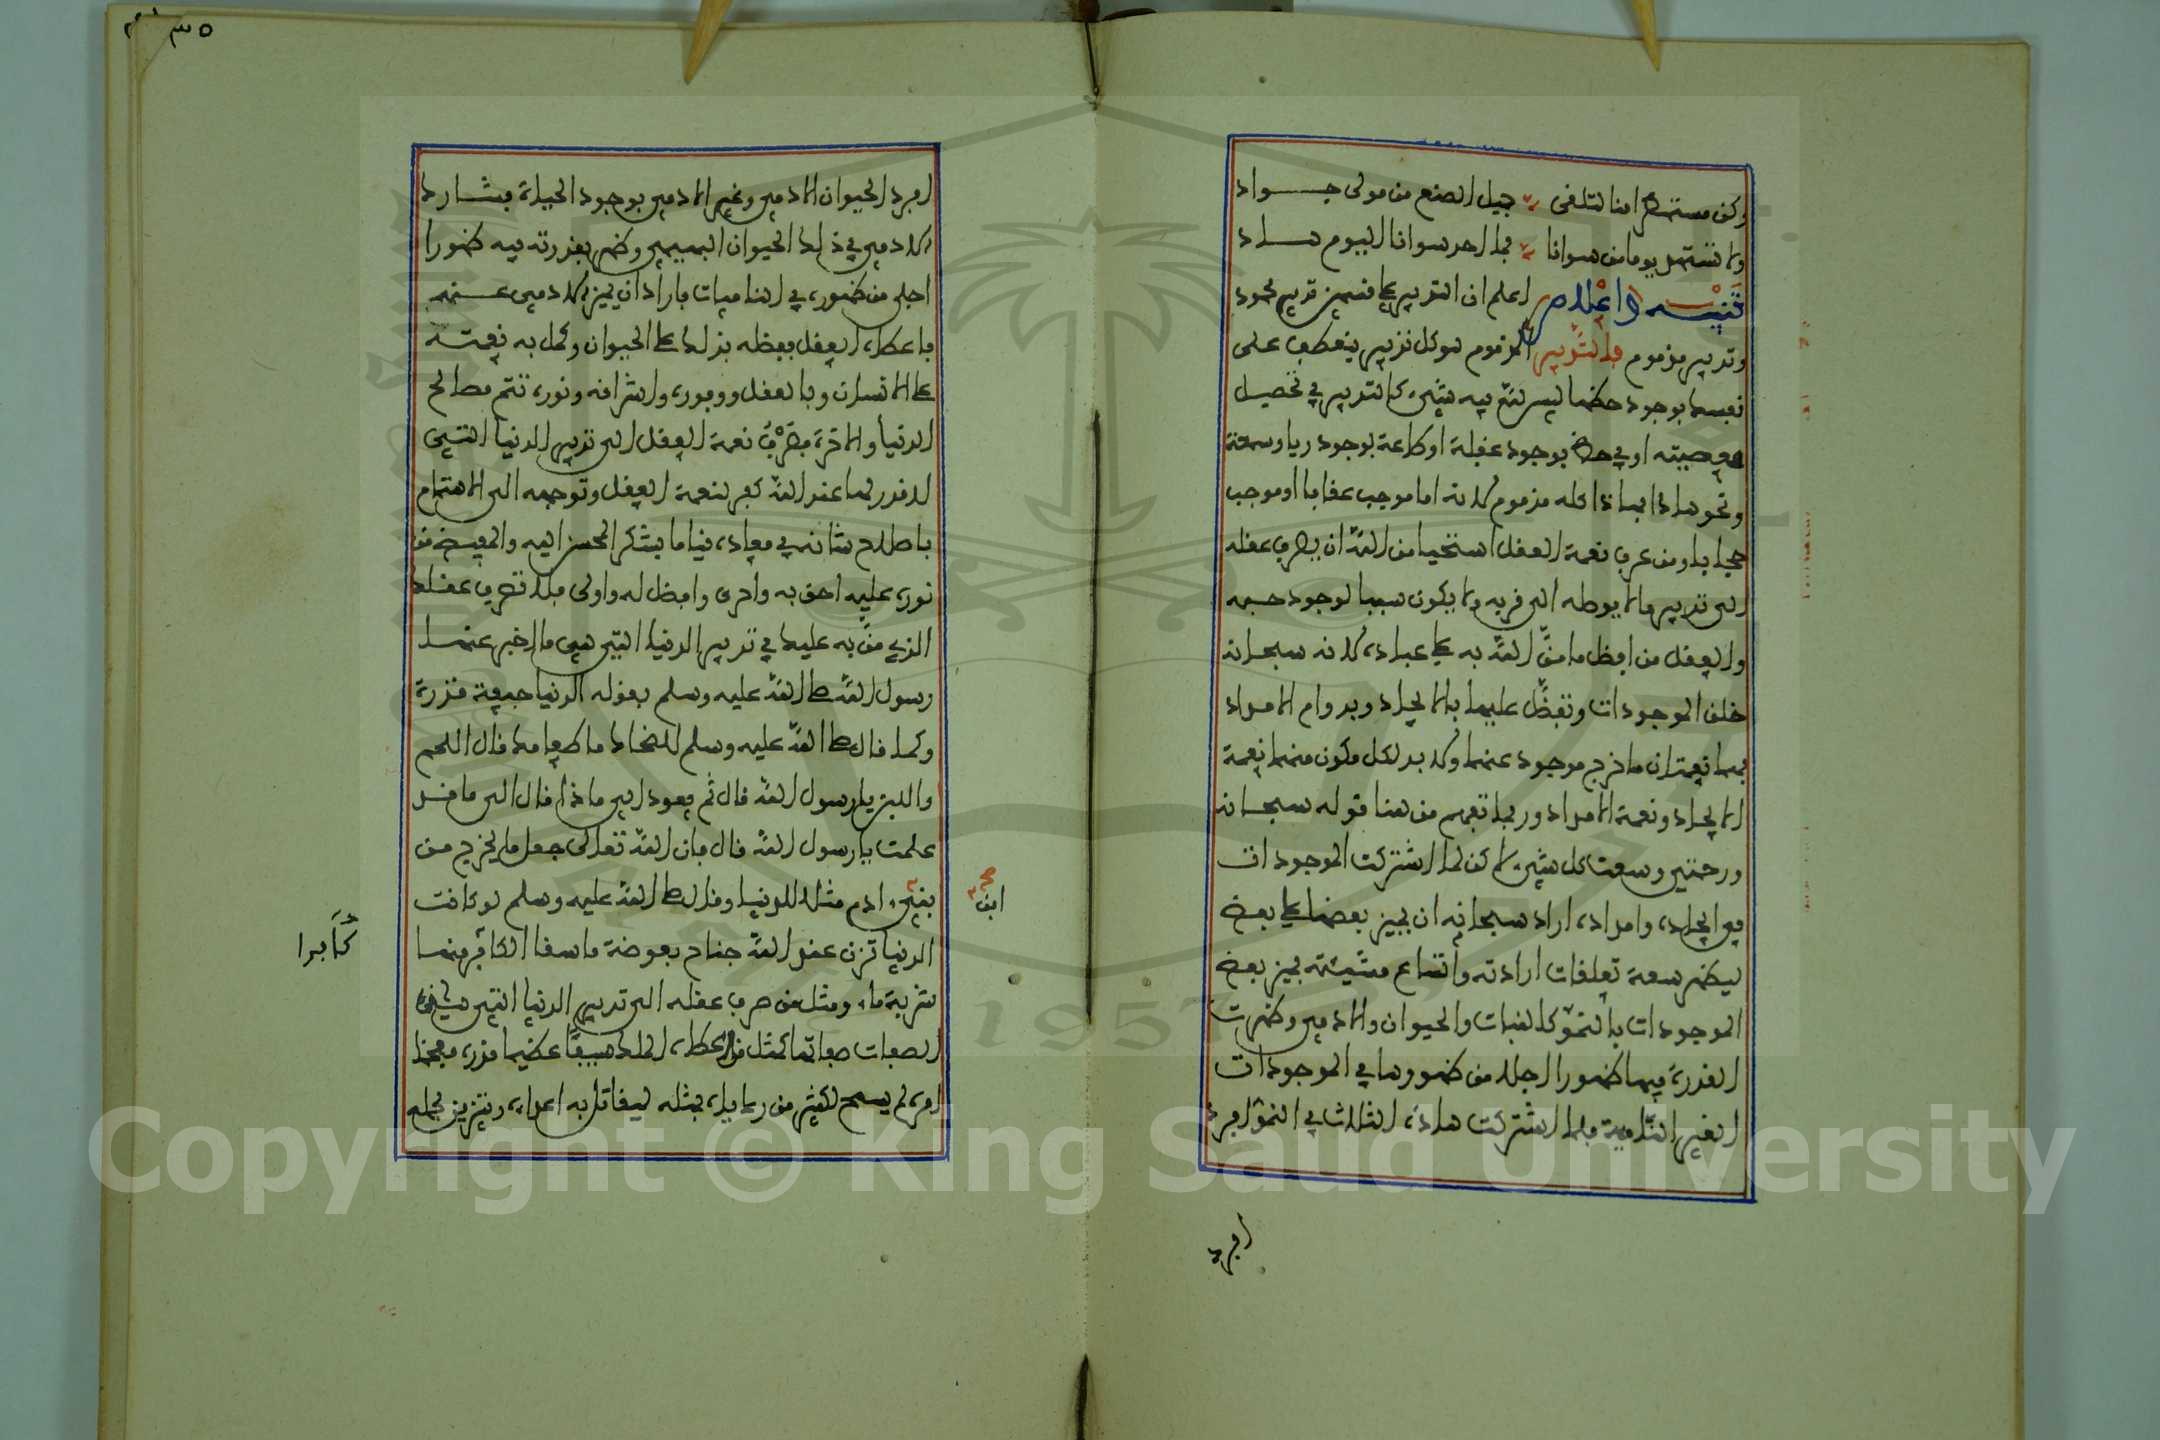 وكن مستمطرا منا لتلقى جميل الصنع من مولى جواد
ولا تستهد يوما من سوانا فما احد سوانا اليوم هاد
تنبيه واعلام اعلم ان التدبير على قسمين تدبير محمود
وتدبير مذموم فالتدبير المذموم هو كل تدبير ينعطف على
نفسك بوجود حظها ليس لله فيه شيء كالتدبير في تحصيل
معصية او في حظ بوجود غفلة او طاعة بوجود ريا وسمعة
ونحو هاذا فهاذا كله مذموم لانه اما موجب عقابا او موجب
حجابا ومن عرف نعمة العقل استحيا من الله ان يصرف عقله
الى تدبير ما لا يوصله الى قربه ولا يكون سببا لوجود حبه
والعقل من افضل ما منّ الله به على عباده لانه سبحانه
خلق الموجودات وتفضّل عليها بالايجاد وبدوام الامداد
فهما نعمتان ما خرج موجود عنهما ولا بد لكل مكون منهما نعمة
الايجاد ونعمة الامداد وربما تفهم من هنا قوله سبحانه
ورحمتي وسعت كل شيء لاكن لما اشتركت الموجودات
في ايجاده وامداده اراد سبحانه ان يميز بعضها على بعض
ليظهر سعة تعلقات ارادته واتساع مشيئته فميز بعض
الموجودات بالنموّ كالنبات والحيوان والادمي وظهرت
القدرة فيها ظهورا اجلا من ظهورها في الموجودات
الغير النامية فلما اشتركت هاذه الثلاث في النموّ افرد
افرد
٣٥
افرد الحيوان الادمي وغير الادمي بوجود الحياة فشارك
الادمي في ذلك الحيوان البهيمي وظهر بقدرته فيه ظهورا
اجلى من ظهوره في الناميات فاراد ان يميز الادمي عنه
فاعطاه العقل ففضله بذلك على الحيوان وكمل به نعمته
على الانسان وبالعقل ووفوره واشراقه ونوره تتم مصالح
الدنيا والاخرة فصرْفُ نعمة العقل الى تدبير الدنيا التي
لا قدر لها عند الله كفر لنعمة العقل وتوجهه الى الاهتمام
باصلاح شانه في معاده قياما بشكر المحسن اليه والمفيض من
نوره عليه احق به واحرى وافضل له واولى فلا تصرف عقلك
الذي منّ به عليك في تدبير الدنيا التي هي كما اخبر عنها
رسول الله صلى الله عليه وسلم بقوله الدنيا جيفة قذرة
وكما قال صلى الله عليه وسلم للضحاك ما طعامك قال اللحم
واللبن يا رسول الله قال ثم يعود الى ماذا قال الى ما قد
علمت يا رسول الله قال فان الله تعالى جعل ما يخرج من
بني ادم مثلا للدنيا وقال صلى الله عليه وسلم لو كانت
ابن صح
الدنيا تزن عند الله جناح بعوضة ما سقا الكافر منها
كافرا
شربة ماء ومثل من صرف عقله الى تدبير الدنيا التي هي
الصفات صفاتها كمثل من اعطاه الملك سيفا عظيما قدره مفخما
امره لم يسمح لكثير من رعاياه بمثله ليقاتل به اعداءه ويتزين بحمله